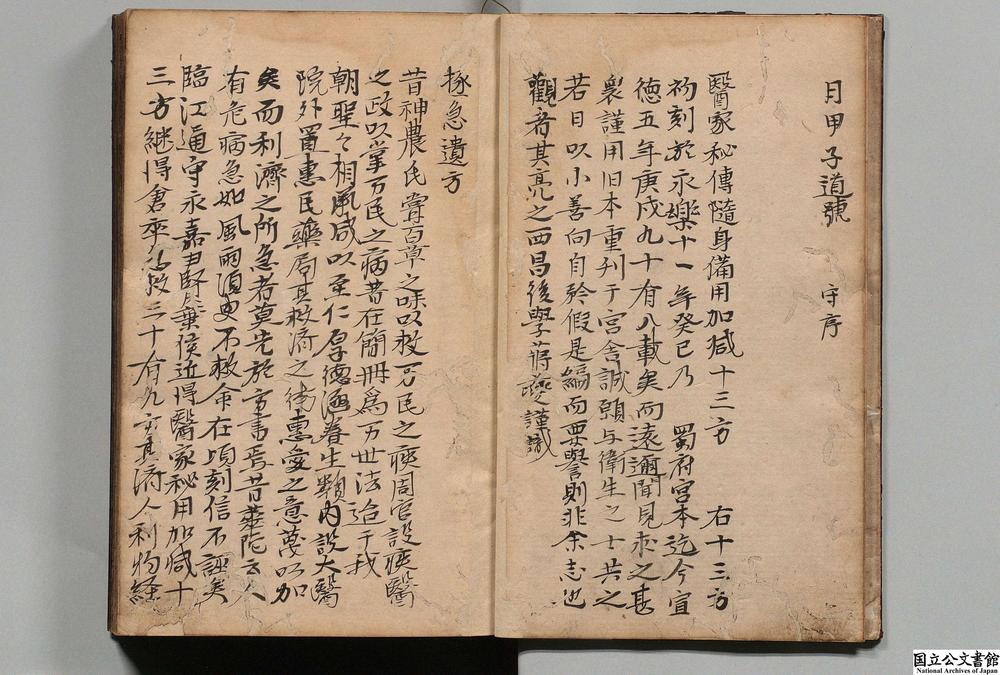 月甲子道號 守序
醫家秘傳隨身備用加减十三方 右十三方
初刻於永樂十一年癸巳乃 蜀府宮本迄今宣
徳五年庚戌九十有八載矣而遠邇聞見求之甚
衆謹用旧本重刋于宮舎誠頋与衛生之士共之
若曰以小善向自矜假是編而要譽則非余志也
觀者其亮之西昌後學蔣夔謹識
拯急遺方
昔神農氏嘗百草之味以救万民之疾周官設疾醫
之政以掌万民之病昔在簡冊爲万世法迨于我
朝聖々相承咸以至仁厚德涵養生類内設大醫
院外置惠民藥局其救済之術惠愛之意蔑以加
矣而利濟之所急者莫先於方書焉昔華陀云人
有危病急如風雨須臾不救命在頃刻信不誣矣
臨江通守永嘉尹賢良侯近得醫家秘用加减十
三方継得倉卒 救三十有九方其済人利物経